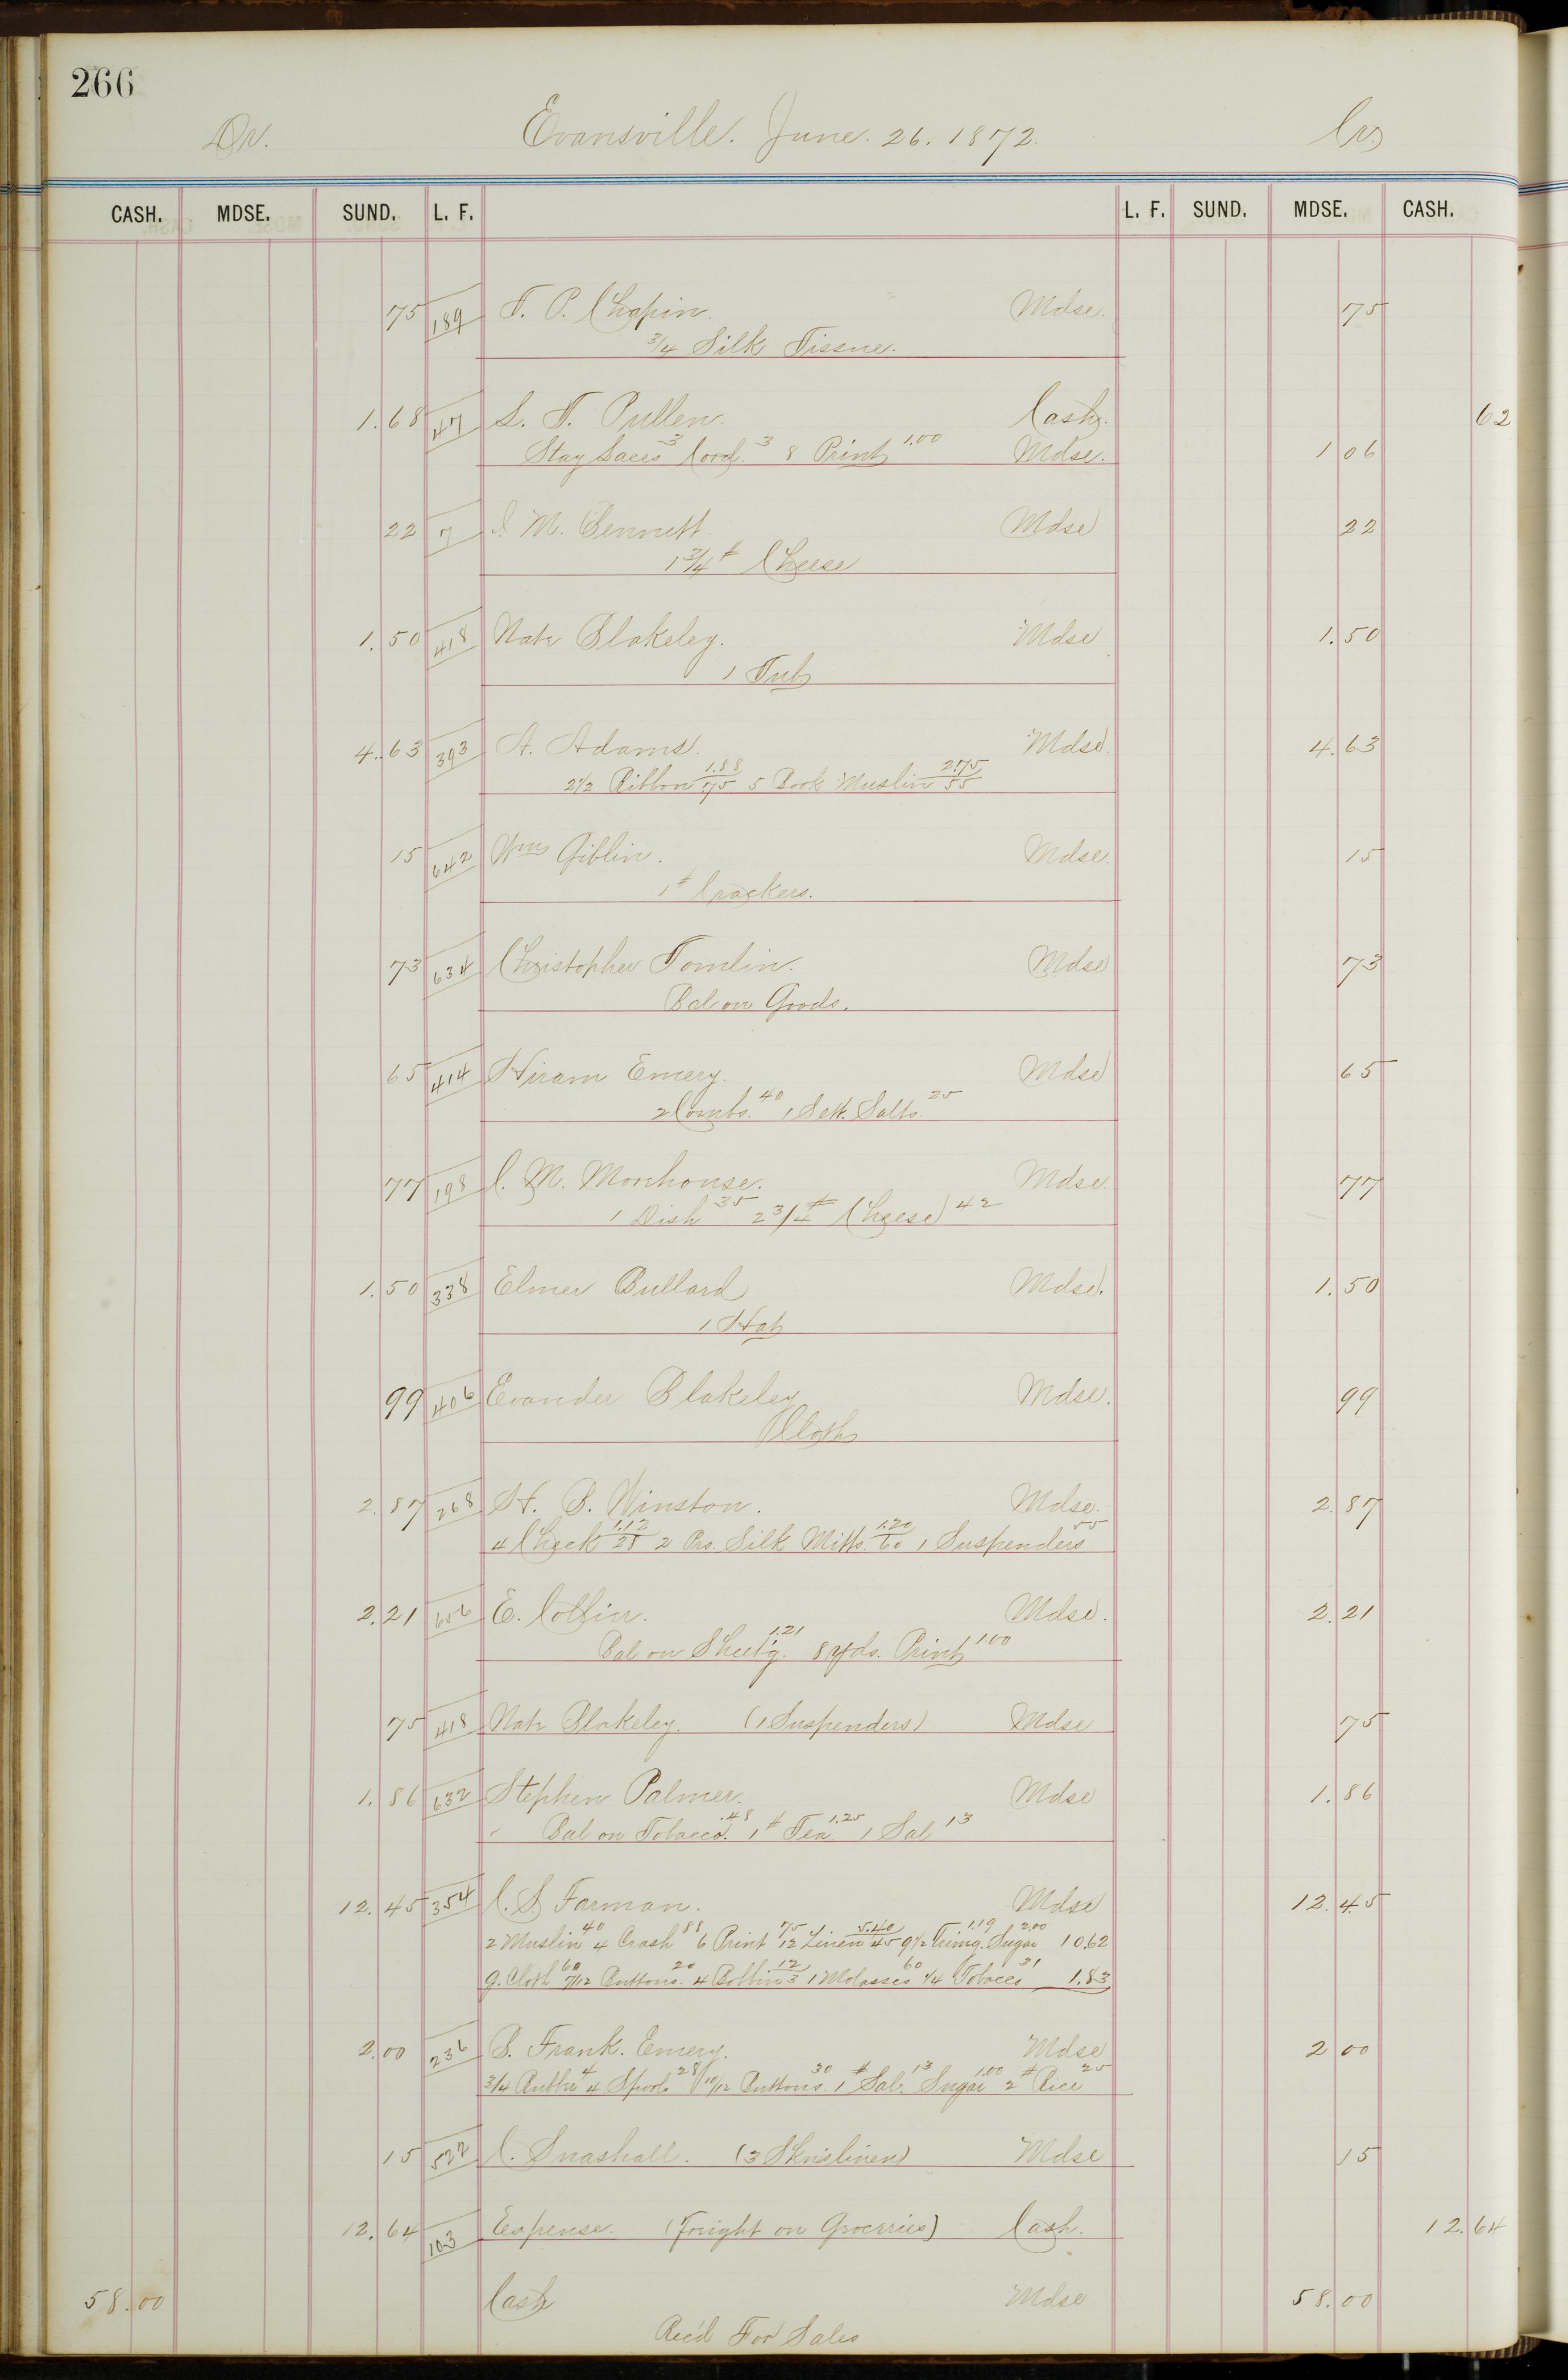 266
Dr. Evansville. June. 26. 1872. Cr.
CASH. MDSE. SUND. L. F. L. F. SUND. MDSE. CASH.
75 189 F. P. Chapin. Mdse. 75
3/4 Silk Tissue.
1.68 47 S. F. Pullen. Cash. 62
Stay Laces 3 Cord. 3 8 Print 1.00 Mdse. 1 06
22 7 I. M. Bennett. Mdse 22
1 3/4 # Cheese
1.50 418 Nate Blakeley. Mdse 1.50
1 Tub
4.63 393 A. Adams. Mdse. 4.63
2 1/2 Ribbon 1.88/75 5 Book Muslin 2.75/55
15 642 Wm Giblin. Mdse. 15
1 # Crackers.
73 634 Christopher Tomlin. Mdse 73
Bal on Goods.
65 414 Hiram Emery. Mdse 65
2 Combs. 40 1 Sett. Salts. 25
77 198 C. M. Morehouse. Mdse. 77
1 Dish 35 2 3/4 # Cheese 42
1.50 338 Elmer Bullard Mdse. 1.50
1 Hat
99 406 Evander Blakeley Mdse. 99
Cloth
2.87 268 H. B. Winston. Mdse. 2.87
4 Check 1.12/28 2 Prs. Silk Mitts. 1.20/60 1 Suspenders 55
2.21 656 E. Coffin. Mdse. 2.21
Bal on Sheet'g. 1.21 8 yds. Print 1.00
75 418 Nate Blakeley. (1 Suspenders) Mdse 75
1.86 632 Stephen Palmer. Mdse 1.86
Bal on Tobacco. .48 1 # Tea 1.25 1 Sal 13
12.45 354 C. S. Farman. Mdse 12.45
2 Muslin 40 4 Crash 88 6 Print 75 12 Linen 5.40/45 9 1/2 Trimg. 1.19 Sugar 2.00 10.62
G. Cloth 60 7/12 Buttons. 20 4 Bobbin 12/3 1 Molasses 60 1/4 Tobacco 31 1.83
2.00 236 B. Frank. Emery. Mdse 2 00
3/4 Rubber 4 4 Spools 28 10/12 Buttons. 30 1 # Sal. 13 Sugar 1.00 2 # Rice 25
15 522 C. Snashall. (3 Skns linen) Mdse 15
12.64 103 Expense. (Freight on Groceries) Cash. 12.64
58.00 Cash Mdse 58.00
Rec'd For Sales